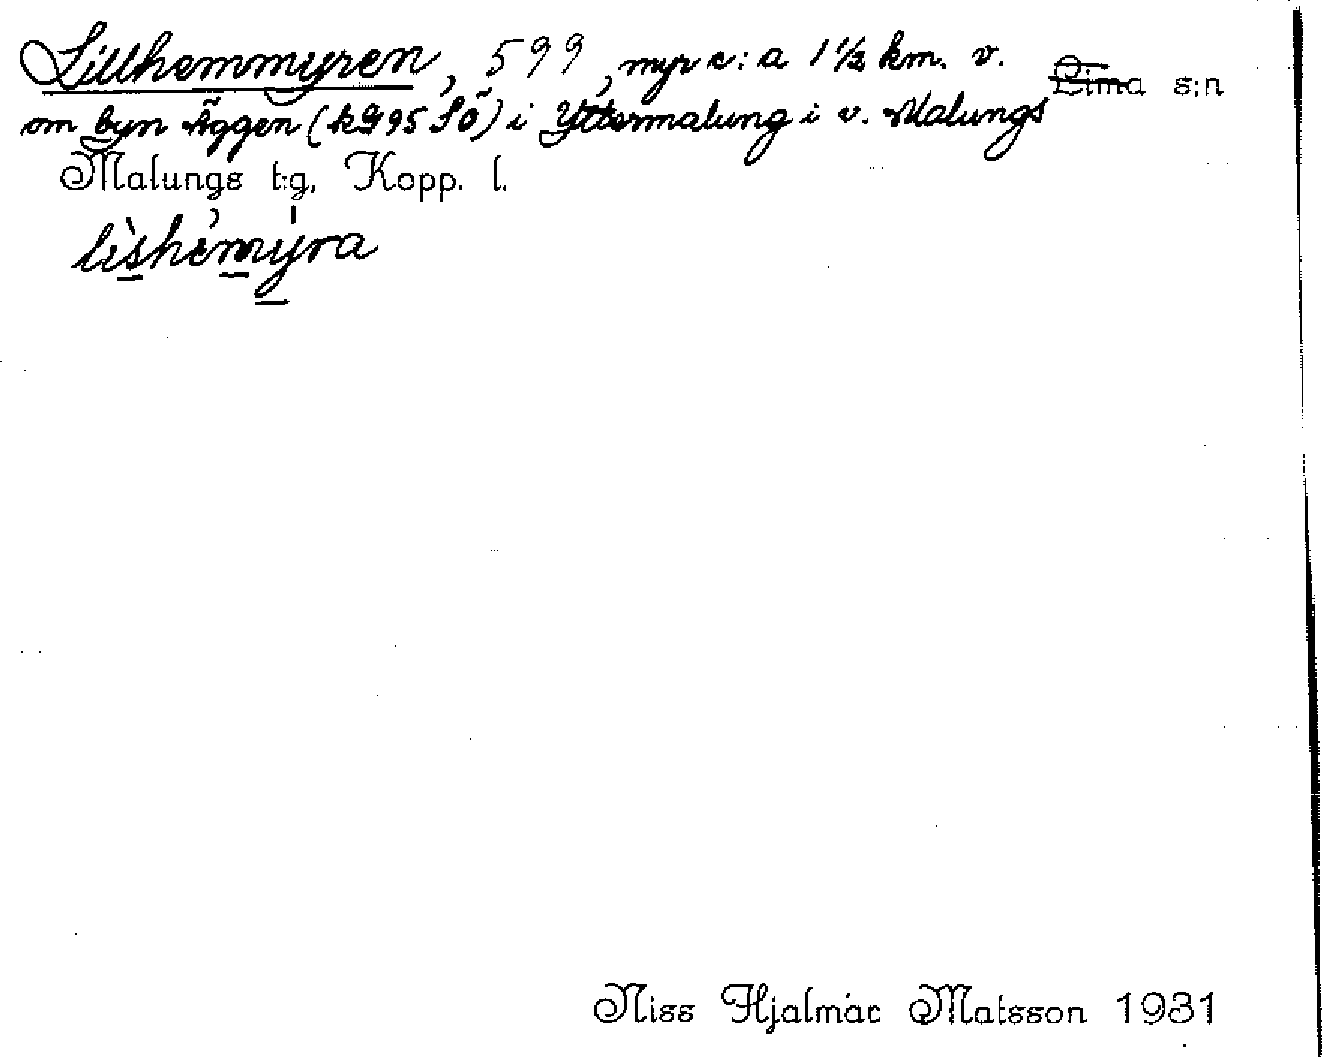 Lillhemmyren, 599, myr c:a 1 ½ km. v.
om byn Äggen (kG 95 SÖ) i Yttermalung i v. Malungs Lima s:n
Malungs t:g, Kopp. l.
lìshemýra
Niss Hjalmar Matsson 1931